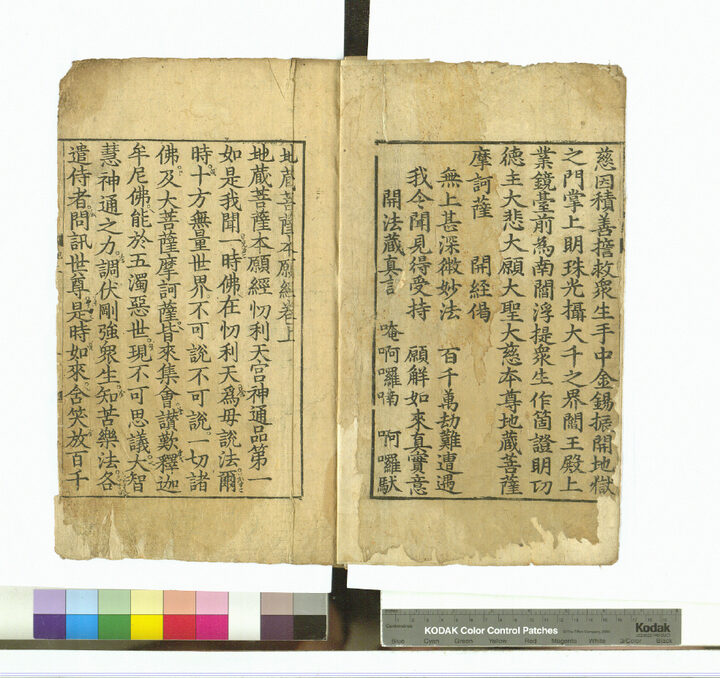 慈因積善擔救衆生手中金錫振開地獄
之門掌上明珠光攝大千之界閻王殿上
業鏡臺前為南閻浮提衆生作箇證明功
德主大悲大願大聖大慈本尊地藏菩薩
摩訶薩 開経偈
無上甚深微妙法 百千萬劫難遭遇
我今聞見得受持 願解如來真實意
開法藏真言 唵啊囉喃 啊囉馱
地蔵菩薩本願經卷上
地蔵菩薩本願經忉利天宮神通品第一
如是我聞一時佛在忉利天爲母說法爾
時十方無量世界不可說不可說一切諸
佛及大菩薩摩訶薩皆來集會讃歎釋迦
牟尼佛能於五濁惡世現不可思議大智
慧神通之力調伏剛強衆生知苦樂法各
遣侍者問訊世尊是時如來含笑放百千
KODAK Color Control Patches
Kodak
Blue Cyan Green Yellow Red Magenta White 3/Color Black